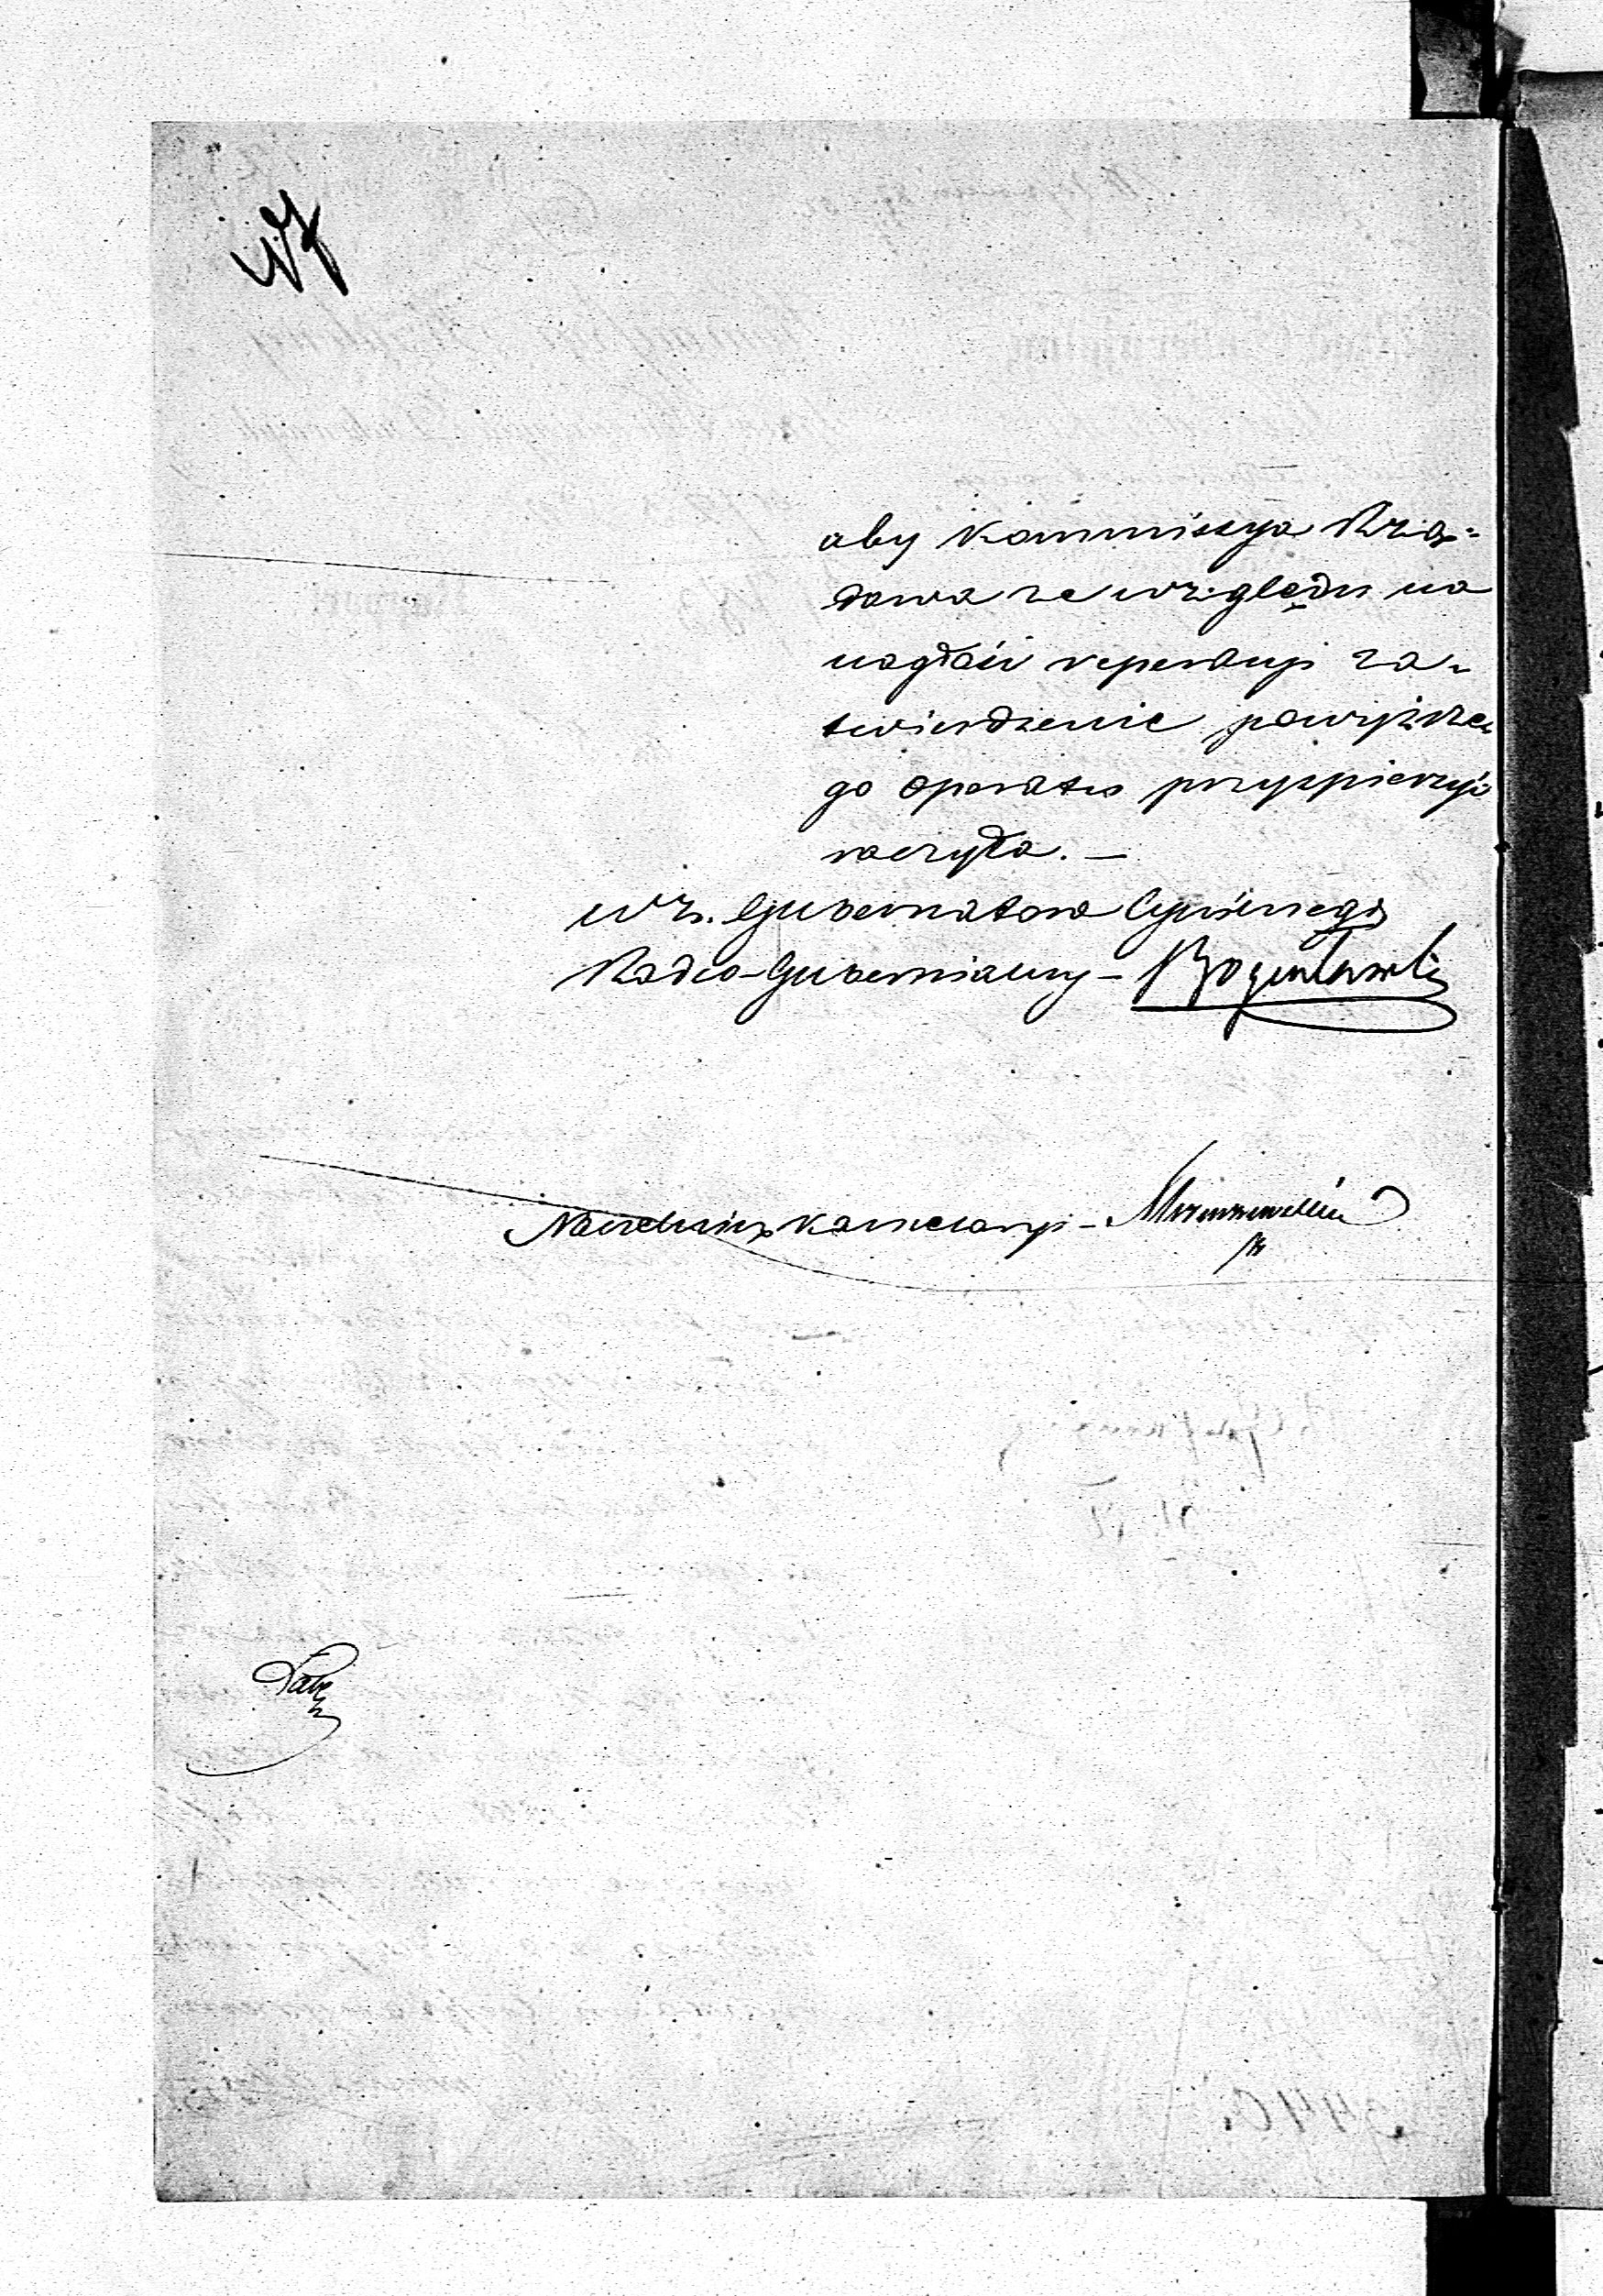 aby Kommissya Rzą=
dowa ze względu na
nagłość reperacyi za-
twierdzenie powyższe-
go operatu przyspieszyć
raczyła. —
wz. Gubernatora Cywilnego
Radca Gubernialny –
Naczelnik Kancelaryi –